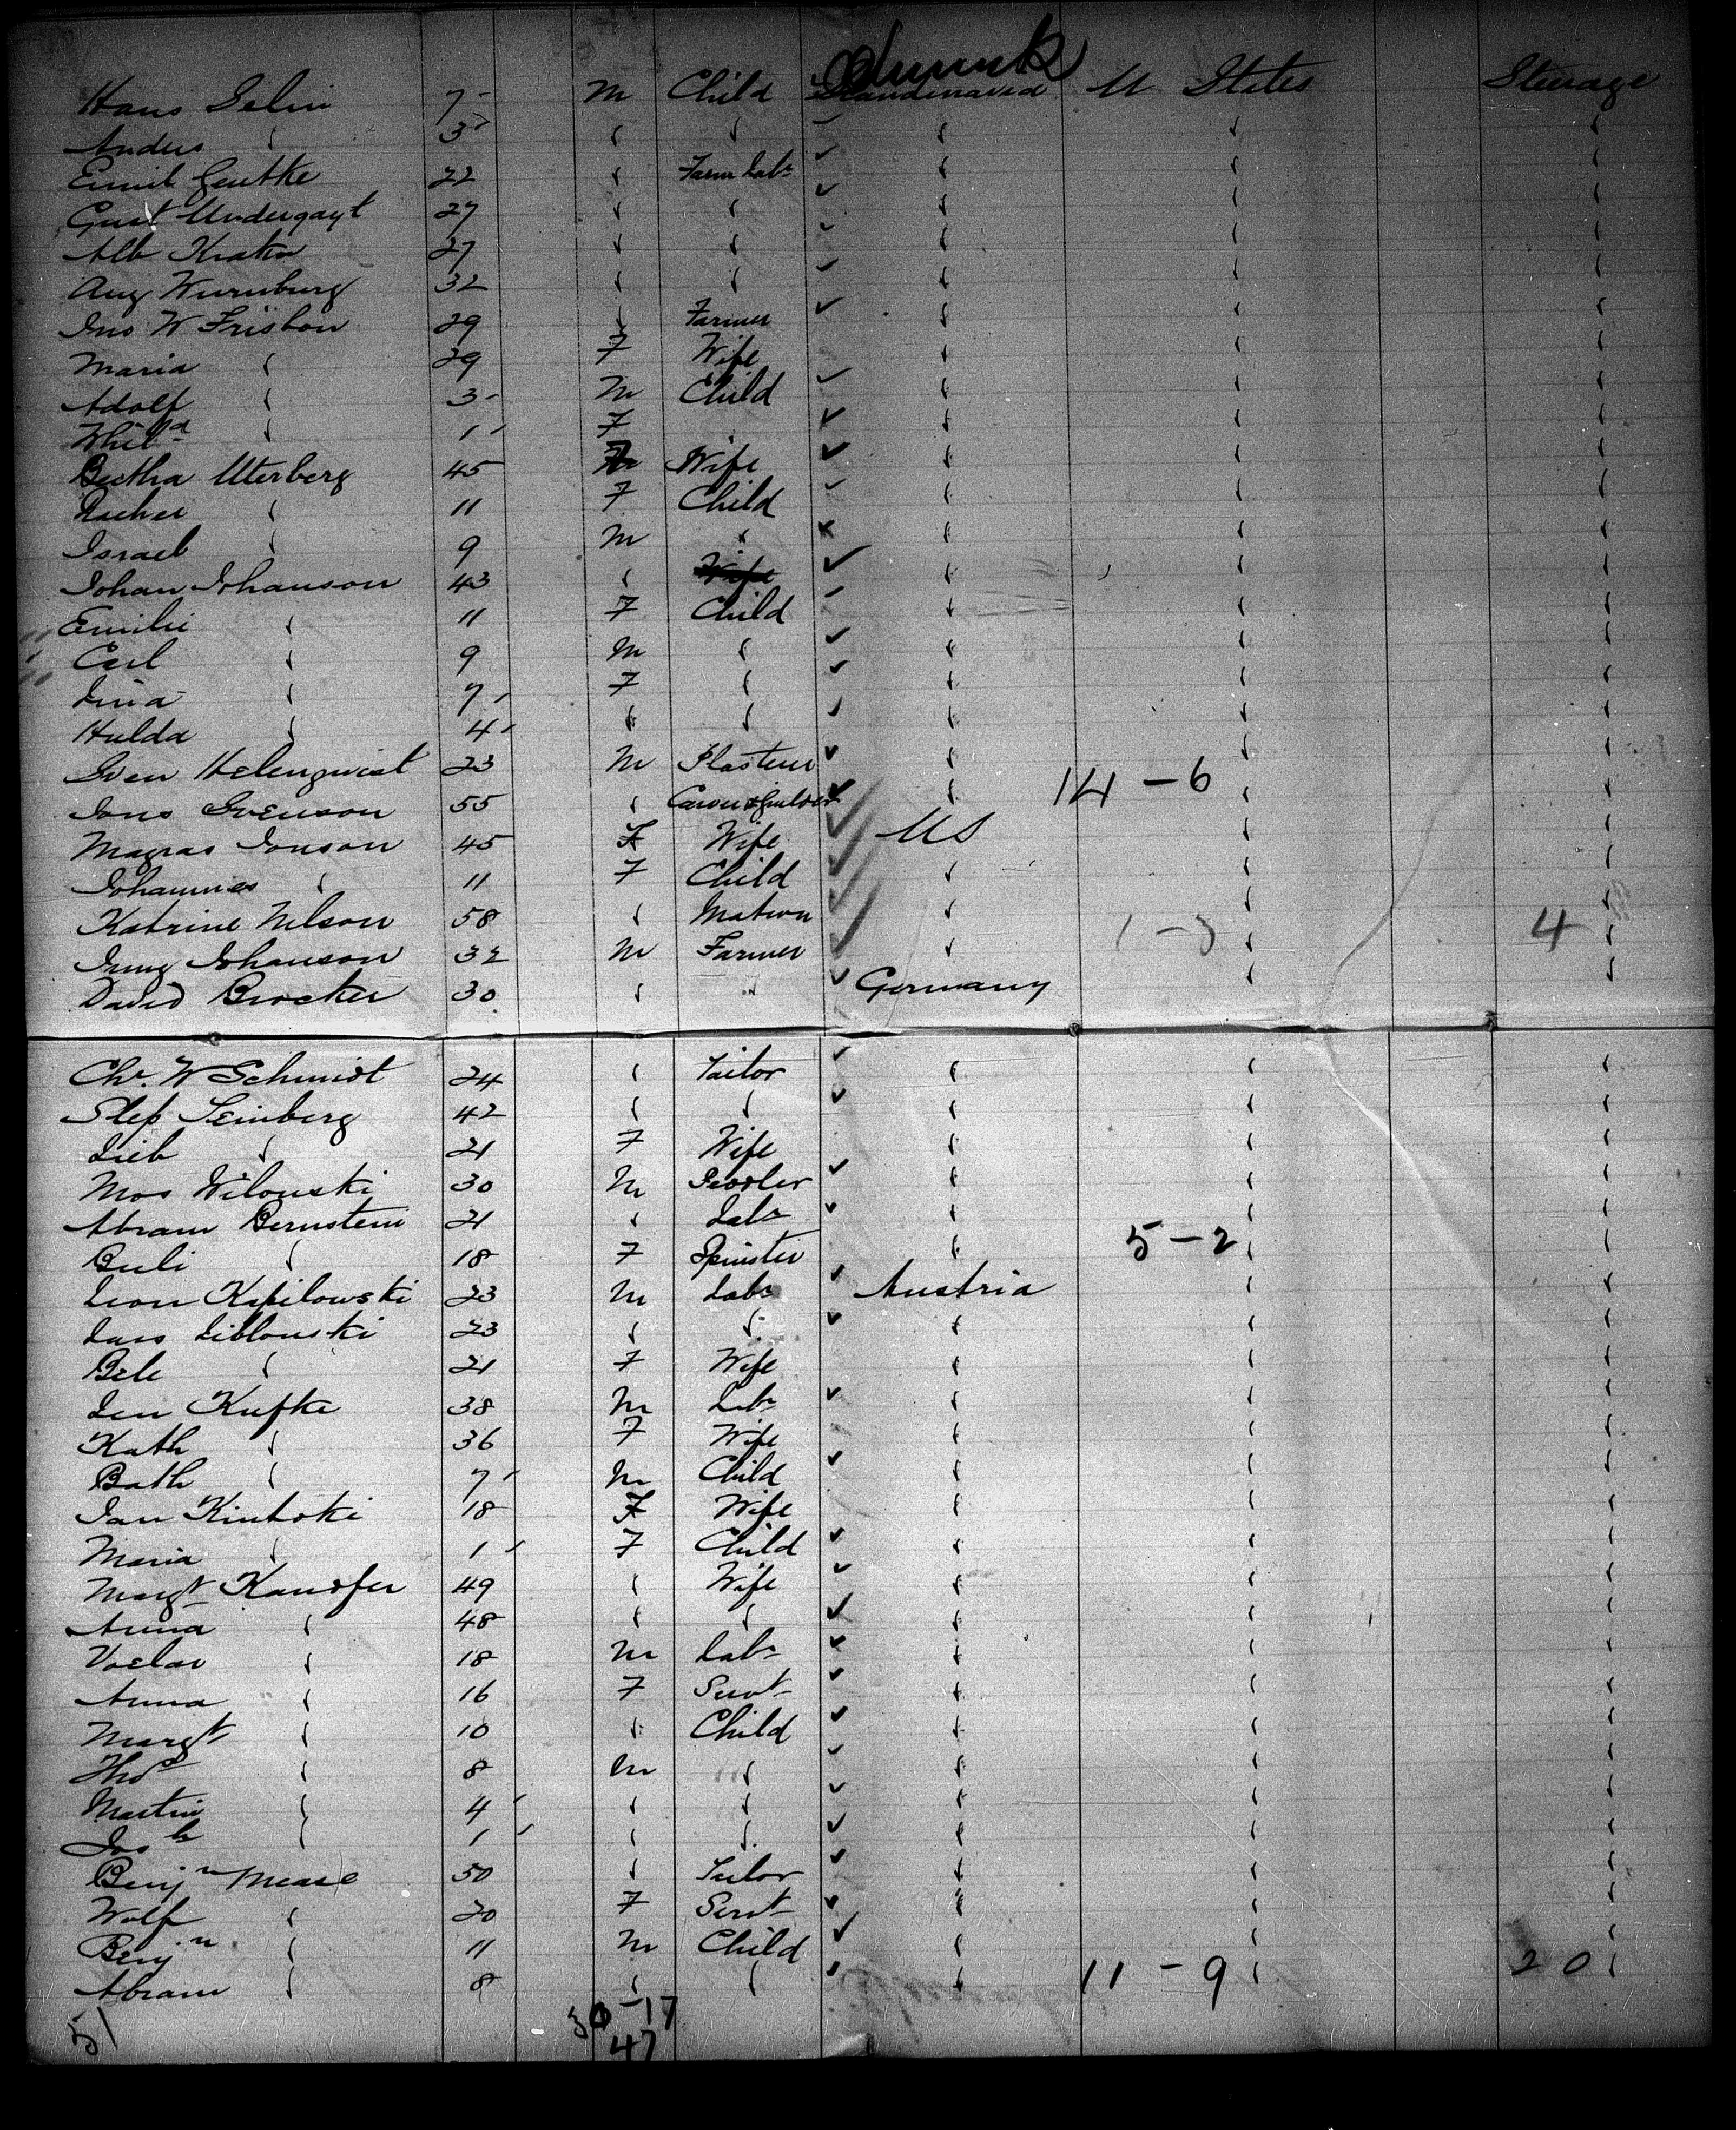 Denmark
Hans Selin 7 M Child Scandinavia U States Steerage
Anders " 3 " " " " "
Emil Gentke 22 " Farm Labr " " "
Gust Undergayt 27 " " " " "
Alb Krako 27 " " " " "
Aug Wurnburg 32 " " " " "
Jno W Frisbon 29 " Farmer " " "
Maria " 29 F Wife " " "
Adolf " 3 M Child " " "
Whild " 1 F " " "
Bertha Uterberg 45 F Wife " " "
Racher " 11 F Child " " "
Israel " 9 M " " " "
Johan Johanson 43 " Wife " " "
Emilie " 11 F Child " " "
Carl " 9 M " " " "
Lina " 7 F " " " "
Hulda " 4 " " " " "
Sven Helenqvist 23 M Plasterer " " "
Jons Svenson 55 " Carver & Guilder " 14 - 6 " "
Magras Jonson 45 F Wife US " "
Johannes " 11 F Child " " "
Katrine Nelson 58 " Matron " " "
Johanson 32 M Farmer " 1 - 3 " 4 "
David Brocker 30 " " Germany " "
Chr. W Schmidt 24 " Tailor " " "
Slep Seinberg 42 " " " " "
Lieb " 21 F Wife " " "
Mos Wilonski 30 M Peddler " " "
Abram Bernstein 21 " Labr " " "
Beili " 18 F Spinster " 5 - 2 " "
Leon Kapilowski 23 M Labr Austria " "
Lais Liblonski 23 " " " " "
Bele " 21 F Wife " " "
Len Kufke 38 M Labr " " "
Kath " 36 F Wife " " "
Bath " 7 M Child " " "
Jan Kintoki 18 F Wife " " "
Maria " 1 F Child " " "
Margt Kandfer 49 " Wife " " "
Anna " 48 " " " " "
Voclav " 18 M Labr " " "
Anna " 16 F Servt " " "
Margt " 10 " Child " " "
Thos " 8 M " " " "
Martin " 4 " " " " "
Josh " 1 " " " " "
Benjn Mease 50 " Tailor " " "
Wolf " 20 F Servt " " "
Benjn " 11 M Child " " "
Abram " 8 " " " 11 - 9 " 20 "
51
30 - 17
47